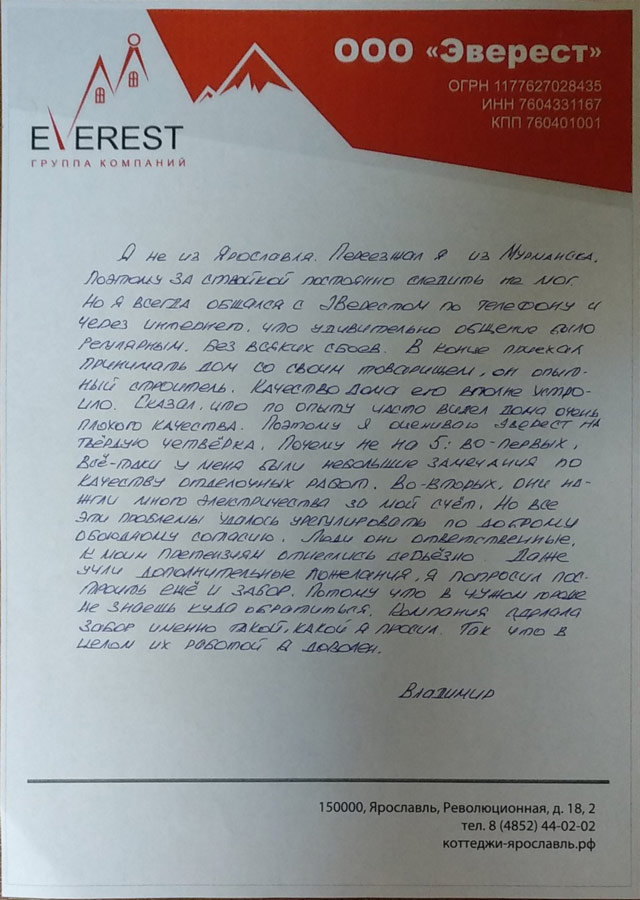 ООО «Эверест»
ОГРН 1177627028435
ИНН 7604331167
КПП 760401001
EVEREST
ГРУППА КОМПАНИЙ
Я не из Ярославля. Переезжал я из Мурманска.
Поэтому за стройкой постоянно следить не мог.
Но я всегда общался с Эверестом по телефону и
через интернет, что удивительно общение было
регулярным. Без всяких сбоев. В конце приехал
принимать дом со своим товарищем, он опыт-
ный строитель. Качество дома его вполне устро-
ило. Сказал, что по опыту часто видел дома очень
плохого качества. Поэтому я оцениваю Эверест на
твёрдую четвёрка. Почему не на 5: во-первых,
всё-таки у меня были небольшие замечания по
качеству отделочных работ. Во-вторых, они на-
жгли много электричества за мой счёт. Но все
эти проблемы удалось урегулировать по доброму
обоюдному согласию. Люди они ответственные,
к моим претензиям отнеслись серьёзно. Даже
учли дополнительные пожелания, я попросил пос-
троить ещё и забор. Потому что в чужом городе
не знаешь куда обратиться. Компания сделала
забор именно такой, какой я просил. Так что в
целом их работой я доволен.
Владимир
150000, Ярославль, Революционная, д. 18, 2
тел. 8 (4852) 44-02-02
коттеджи-ярославль.рф